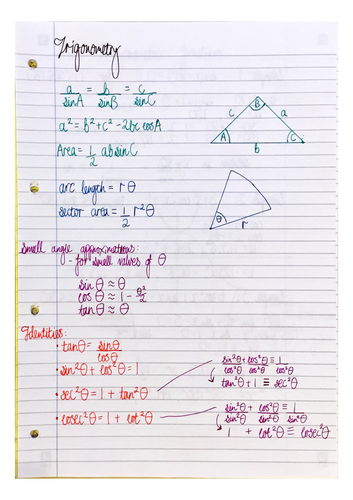 Trigonometry
a/sinA = b/sinB = c/sinC
a² = b² + c² - 2bc cosA
Area = 1/2 ab sinC
B
c a
A C
b
arc length = rθ
sector area = 1/2 r²θ
θ r
Small angle approximations:
- for small values of θ
sinθ ≈ θ
cosθ ≈ 1 - θ²/2
tanθ ≈ θ
Identities:
• tanθ = sinθ/cosθ
• sin²θ + cos²θ = 1
• sec²θ = 1 + tan²θ
• cosec²θ = 1 + cot²θ
sin²θ/cos²θ + cos²θ/cos²θ ≡ 1/cos²θ
tan²θ + 1 ≡ sec²θ
sin²θ/sin²θ + cos²θ/sin²θ ≡ 1/sin²θ
1 + cot²θ ≡ cosec²θ